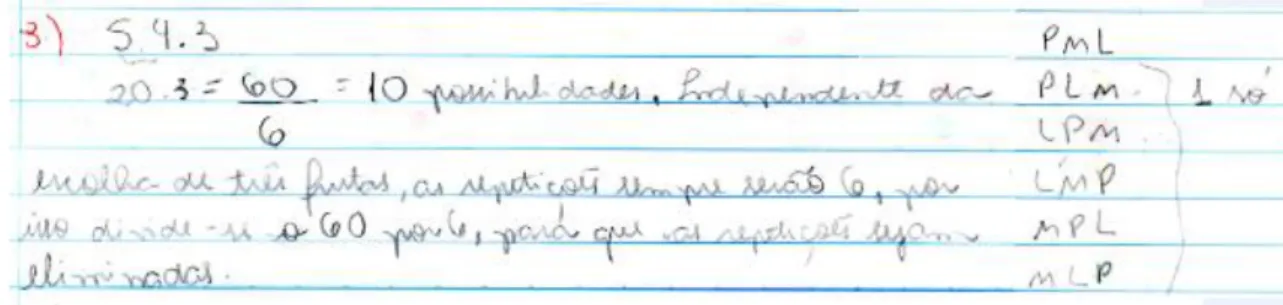 3) 5.4.3 PML
20.3 = 60 = 10 possibilidades, Independente da PLM 1 só
6 LPM
escolha de três frutas, as repetições sempre serão 6, por LMP
isso divide-se o 60 por 6, para que as repetições sejam MPL
eliminadas. MLP